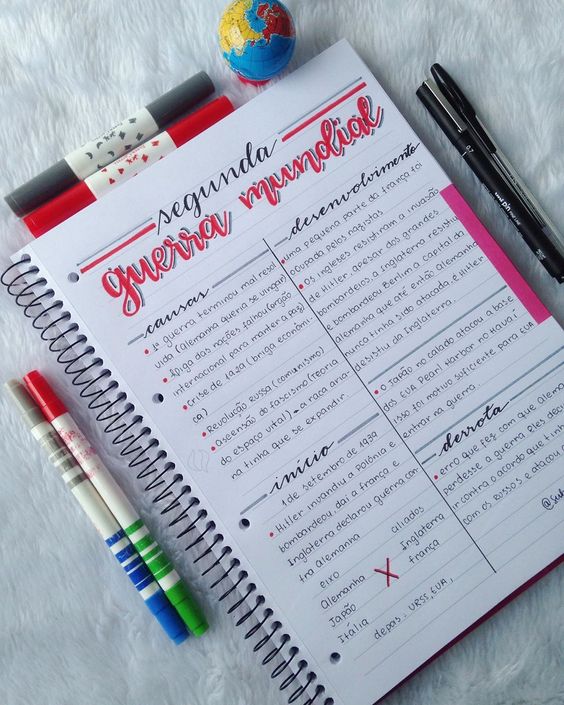 segunda
guerra mundial
causas
• 1ª guerra terminou mal resol
vida (Alemanha queria se vingar)
• liga das nações falhou (orgão
internacional para manter a paz)
• Crise de 1929 (briga econômi
ca)
• Revolução Russa (comunismo)
• Ascensão do fascismo (teoria
do espaço vital) - a raça aria-
na tinha que se expandir.
início
1 de setembro de 1939
• Hitler invandiu a Polônia e
bombardeou, daí a frança e
Inglaterra declarou guerra con
tra Alemanha
eixo
Alemanha
Japão
Itália
X
aliados
Inglaterra
frança
depois: URSS, EUA,
desenvolvimento
• uma pequena parte da frança foi
ocupada pelos nazistas
• Os ingleses resistiram a invasão
de Hitler, apesar dos grandes
bombardeios, a Inglaterra resistiu
e bombardeou Berlim a Capital da
Alemanha que até então Alemanha
nunca tinha sido atacada, e Hitler
desistiu da Inglaterra.
• O Japão no calado atacou a base
dos EUA Pearl Harbor no Havaí
isso foi motivo suficiente para EUA
entrar na guerra.
derrota
• erro que fez com que Alema
perdesse a guerra. Eles deci
incontra o acordo que tinh
com os russos e atacou
0.7
uni